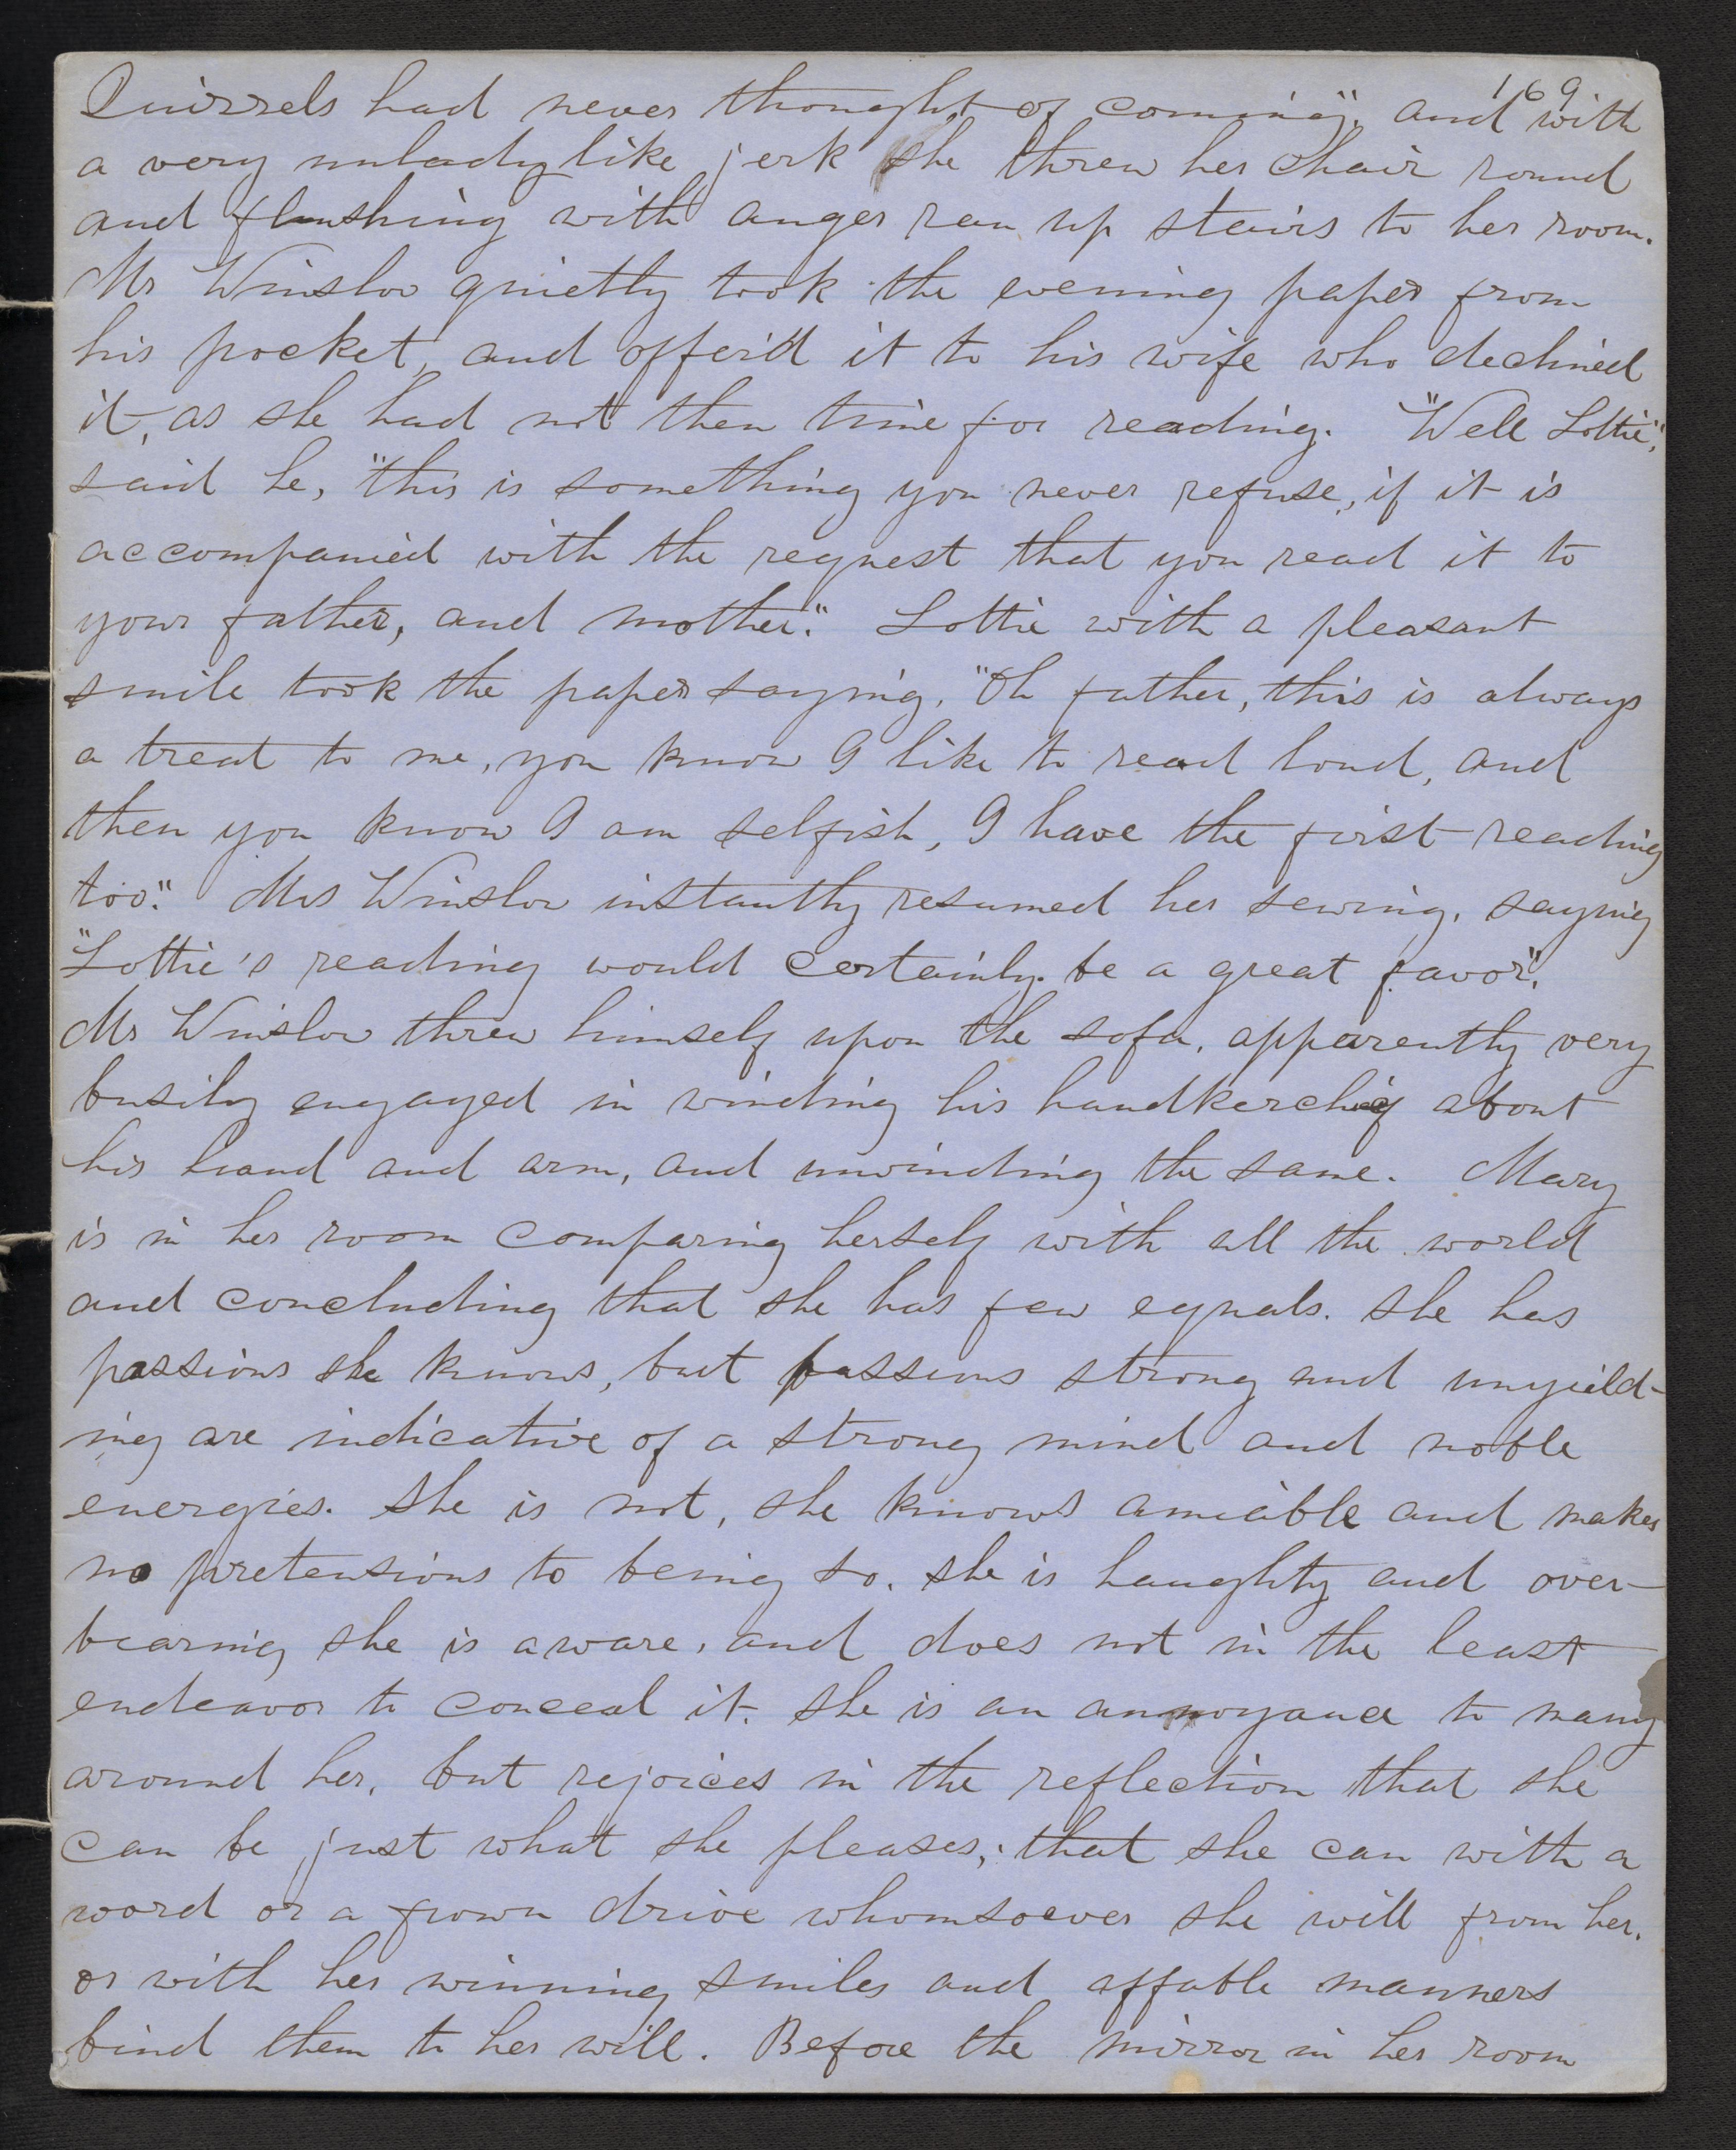 169
Quirrels had never thought of coming". and with
a very unlady like jerk she threw her chair round
and flushing with anger ran up stairs to her room.
Mr Winslow quietly took the evening paper from
his pocket, and offer'd it to his wife who declined
it, as she had not then time for reading. "Well Lottie",
said he, "this is something you never refuse, if it is
accompanied with the request that you read it to
your father, and mother." Lottie with a pleasant
smile took the paper saying, "Oh father, this is always
a treat to me, you know I like to read loud, and
then you know I am selfish, I have the first reading
too." Mrs Winslow instantly resumed her sewing, saying
"Lottie's reading would certainly be a great favor".
Mr Winslow threw himself upon the sofa, apparently very
busily engaged in winding his handkerchief about
his hand and arm, and unwinding the same. Mary
is in her room comparing herself with all the world
and concluding that she has few equals. She has
passions she knows, but passions strong and unyield-
ing are indicative of a strong mind and noble
energies. She is not, she knows amiable and makes
no pretensions to being so. she is haughty and over-
bearing she is aware, and does not in the least
endeavor to conceal it. She is an annoyance to many
around her, but rejoices in the reflection that she
can be just what she pleases; that she can with a
word or a frown drive whomsoever she will from her.
or with her winning smiles and affable manners
bind them to her will. Before the mirror in her room